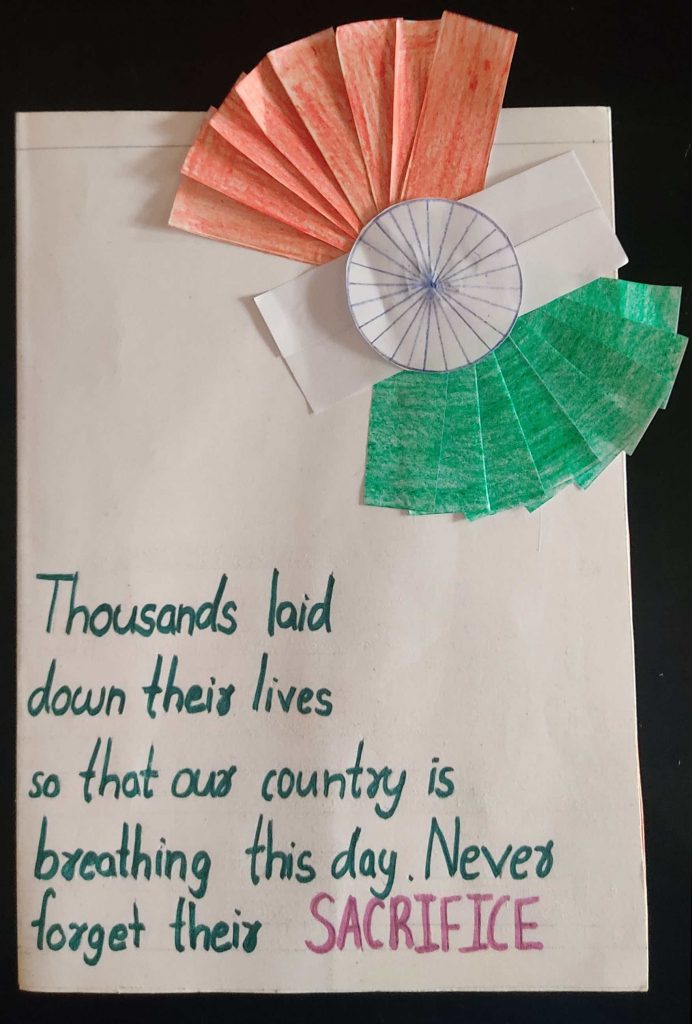 Thousands laid
down their lives
so that our country is
breathing this day. Never
forget their SACRIFICE